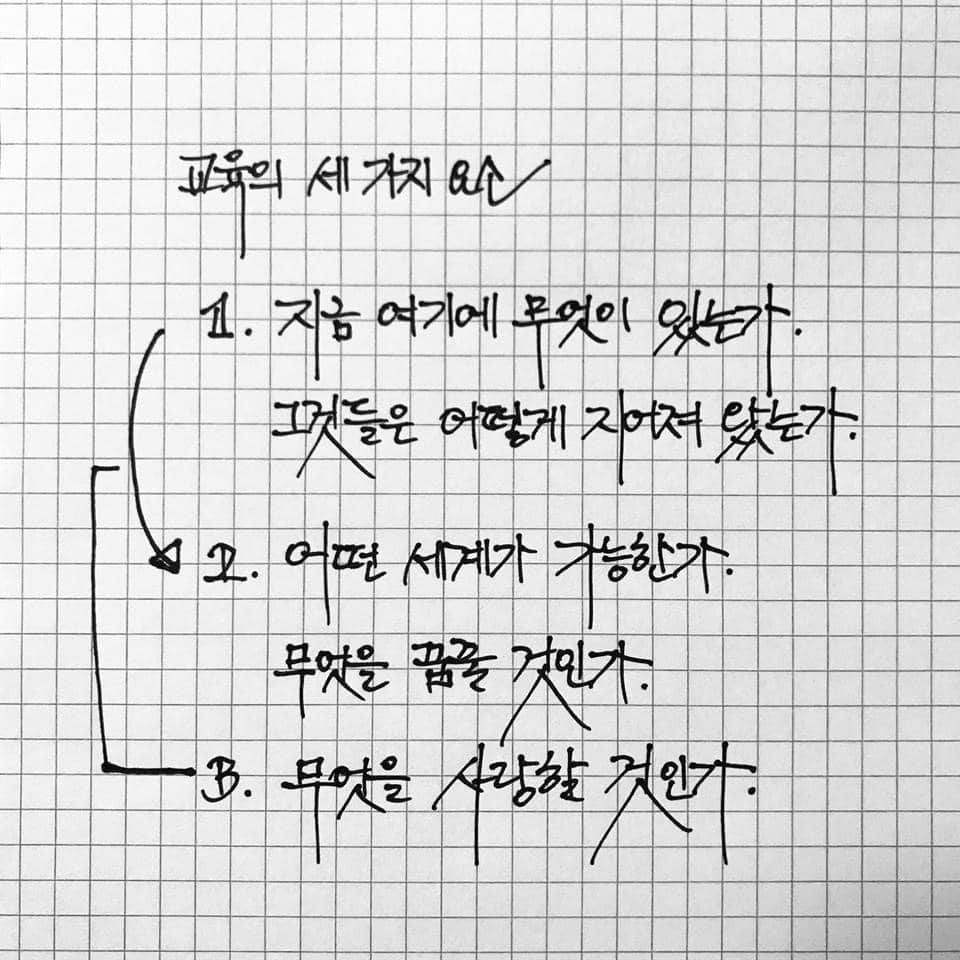 교육의 세 가지 요소
1. 지금 여기에 무엇이 있는가.
그것들은 어떻게 지어져 왔는가.
2. 어떤 세계가 가능한가.
무엇을 꿈꿀 것인가.
3. 무엇을 사랑할 것인가.